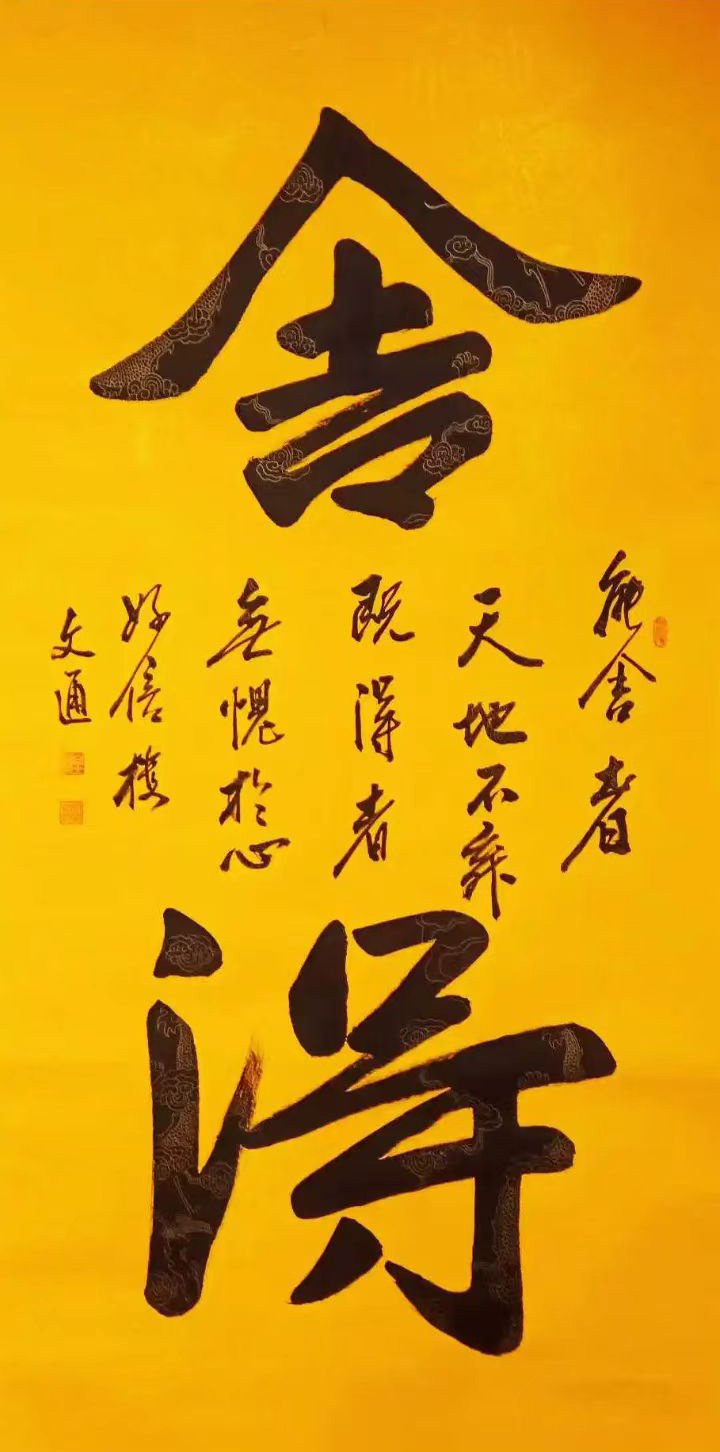 舍
得
能舍者
天地不弃
既得者
無愧於心
好信楼
文通